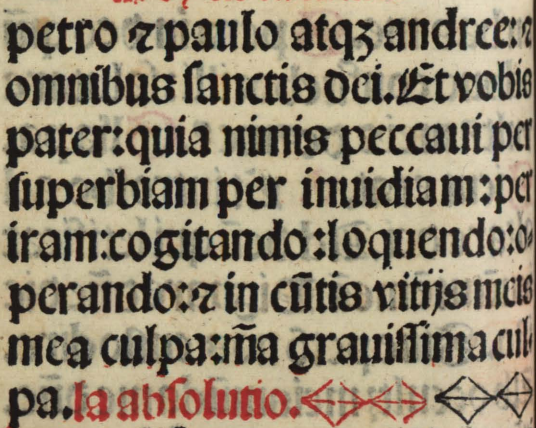 petro ⁊ paulo atqꝫ andree: ⁊
omnibus ſanctis dei. Et vobis
pater: quia nimis peccaui per
ſuperbiam per inuidiam: per
iram: cogitando: loquendo: o⸗
perando: ⁊ in cūtis vitijs meis
mea culpa: m̄a grauiſſima cul⸗
pa. la abſolutio.